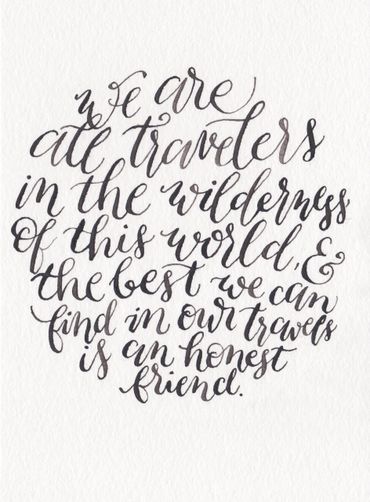 we are
all travelers
in the wilderness
of this world, &
the best we can
find in our travels
is an honest
friend.